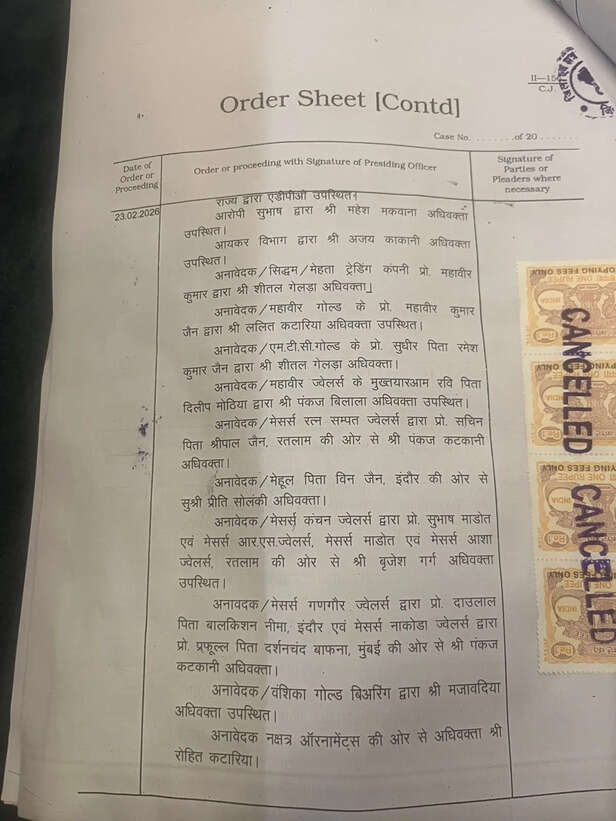 II—15
C.J.
Order Sheet [Contd]
Case No. ........of 20 .......
Date of
Order or
Proceeding
Order or proceeding with Signature of Presiding Officer
Signature of
Parties or
Pleaders where
necessary
23.02.2026
राज्य द्वारा एडीपीओ उपस्थित।
आरोपी सुभाष द्वारा श्री महेश मकवाना अधिवक्ता
उपस्थित।
आयकर विभाग द्वारा श्री अजय काकानी अधिवक्ता
उपस्थित।
अनावेदक/सिद्धम/मेहता ट्रेडिंग कंपनी प्रो. महावीर
कुमार द्वारा श्री शीतल गेलड़ा अधिवक्ता।
अनावेदक/महावीर गोल्ड के प्रो. महावीर कुमार
जैन द्वारा श्री ललित कटारिया अधिवक्ता उपस्थित।
अनावेदक/एम.टी.सी.गोल्ड के प्रो. सुधीर पिता रमेश
कुमार जैन द्वारा श्री शीतल गेलड़ा अधिवक्ता।
अनावेदक/महावीर ज्वेलर्स के मुख्तयारआम रवि पिता
दिलीप मोठिया द्वारा श्री पंकज बिलाला अधिवक्ता उपस्थित।
अनावेदक/मेसर्स रत्न सम्पत ज्वेलर्स द्वारा प्रो. सचिन
पिता श्रीपाल जैन, रतलाम की ओर से श्री पंकज कटकानी
अधिवक्ता।
अनावेदक/मेहूल पिता विन जैन, इंदौर की ओर से
सुश्री प्रीति सोलंकी अधिवक्ता।
अनावेदक/मेसर्स कंचन ज्वेलर्स द्वारा प्रो. सुभाष माडोत
एवं मेसर्स आर.एस.ज्वेलर्स, मेसर्स माडोत एवं मेसर्स आशा
ज्वेलर्स, रतलाम की ओर से श्री बृजेश गर्ग अधिवक्ता
उपस्थित।
अनावदक/मेसर्स गणगौर ज्वेलर्स द्वारा प्रो. दाउलाल
पिता बालकिशन नीमा, इंदौर एवं मेसर्स नाकोडा ज्वेलर्स द्वारा
प्रो. प्रफूल्ल पिता दर्शनचंद बाफना, मुंबई की ओर से श्री पंकज
कटकानी अधिवक्ता।
अनावेदक/वंशिका गोल्ड बिअरिंग द्वारा श्री मजावदिया
अधिवक्ता उपस्थित।
अनावेदक नक्षत्र ऑरनामेंट्स की ओर से अधिवक्ता श्री
रोहित कटारिया।
CANCELLED
CANCELLED
COPYING FEES ONLY
ONE RUPEE
INDIA